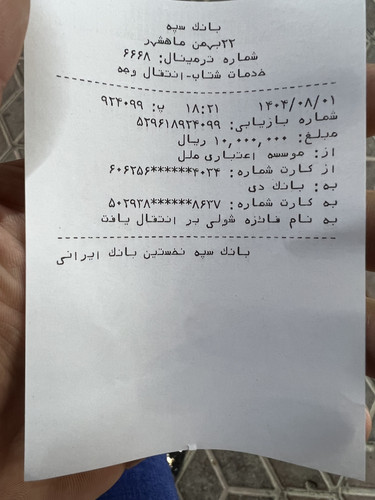 بانک سپه
۲۲بهمن ماهشهر
شماره ترمینال: ۶۶۶۸
خدمات شتاب-انتقال وجه
۱۴۰۴/۰۸/۰۱ ۱۸:۲۱ پ: ۹۲۴۰۹۹
شماره بازیابی: ۵۲۹۶۱۸۹۲۴۰۹۹
مبلغ: ۱۰,۰۰۰,۰۰۰ ریال
از: موسسه اعتباری ملل
از کارت شماره: ۶۰۶۲۵۶******۴۰۲۴
به: بانک دی
به کارت شماره: ۵۰۲۹۳۸******۸۶۲۷
به نام فائزه شولی بر انتقال یافت
بانک سپه نخستین بانک ایرانی